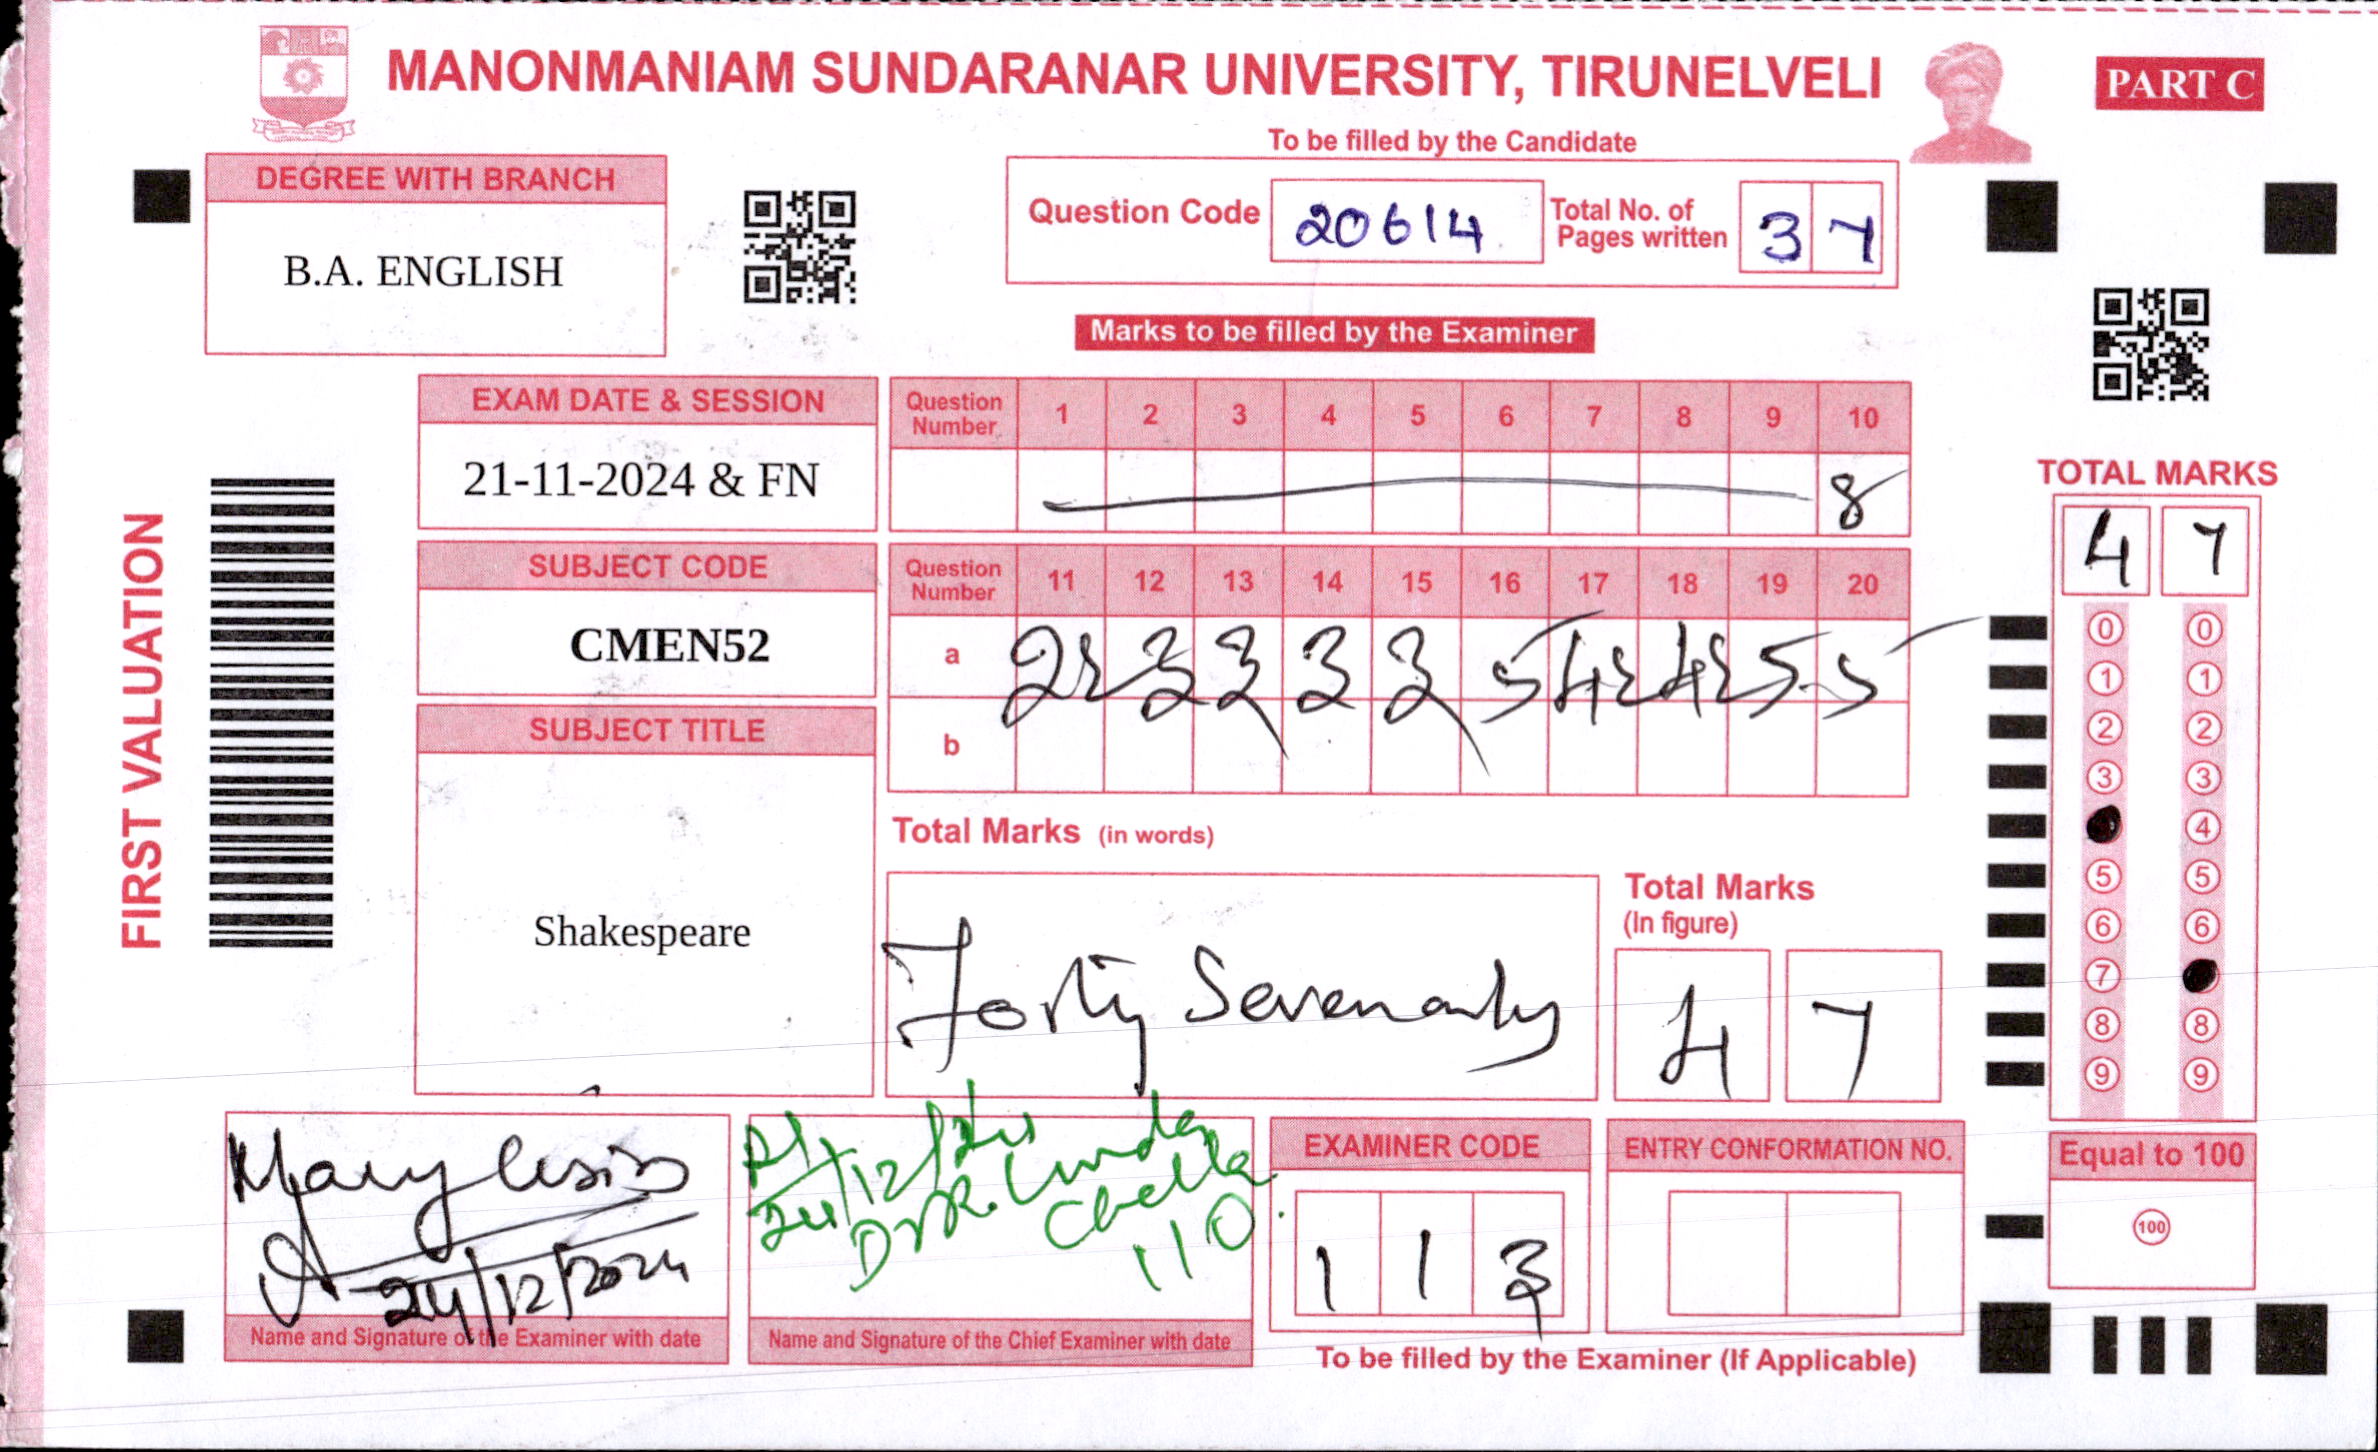 MANONMANIAM SUNDARANAR UNIVERSITY, TIRUNELVELI
PART C
To be filled by the Candidate
DEGREE WITH BRANCH
B.A. ENGLISH
Question Code 20614 Total No. of Pages written 37
Marks to be filled by the Examiner
FIRST VALUATION
EXAM DATE & SESSION
21-11-2024 & FN
SUBJECT CODE
CMEN52
SUBJECT TITLE
Shakespeare
Question Number 1 2 3 4 5 6 7 8 9 10
8
Question Number 11 12 13 14 15 16 17 18 19 20
a 3 3 3 3 5 5 5
b
Total Marks (in words)
Forty Seven only
Total Marks
(In figure)
4 7
TOTAL MARKS
4 7
0 0
1 1
2 2
3 3
4
5 5
6 6
7
8 8
9 9
Equal to 100
100
Mary
24/12/2024
Name and Signature of the Examiner with date
24/12/24
110
Name and Signature of the Chief Examiner with date
EXAMINER CODE
1 1 3
ENTRY CONFORMATION NO.
To be filled by the Examiner (If Applicable)